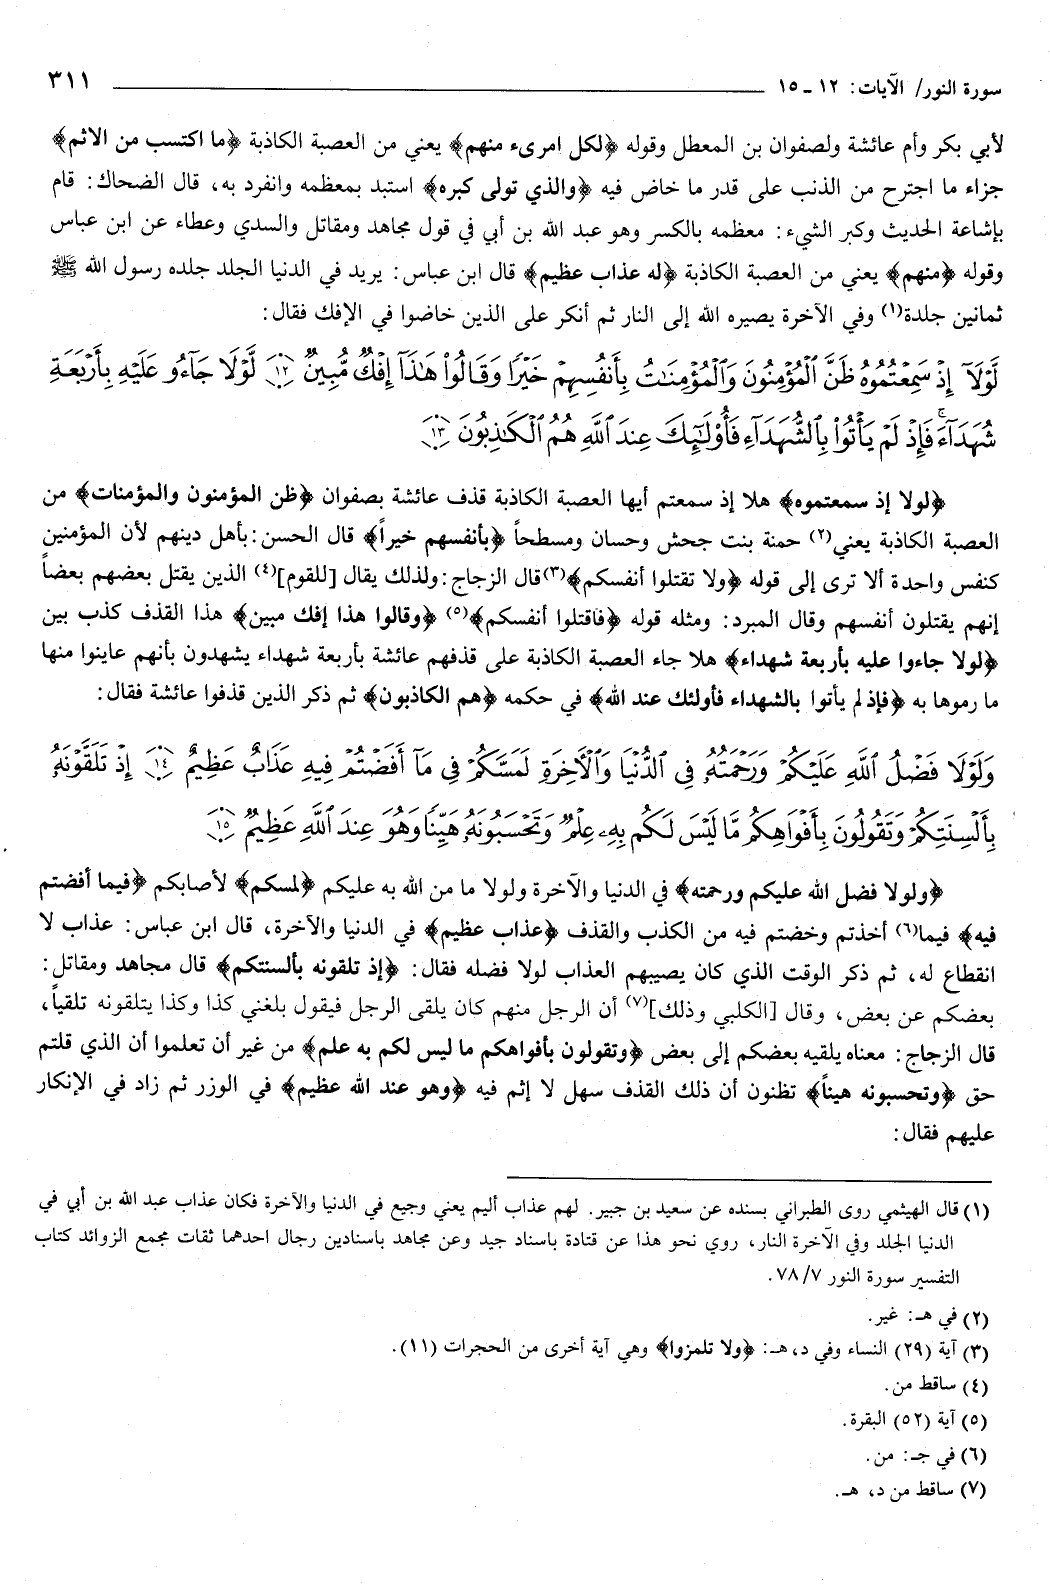 سورة النور/ الآيات: ١٢ ـ ١٥ ٣١١
لأبي بكر وأم عائشة ولصفوان بن المعطل وقوله ﴿لكل امرىء منهم﴾ يعني من العصبة الكاذبة ﴿ما اكتسب من الاثم﴾
جزاء ما اجترح من الذنب على قدر ما خاض فيه ﴿والذي تولى كبره﴾ استبد بمعظمه وانفرد به، قال الضحاك: قام
بإشاعة الحديث وكبر الشيء: معظمه بالكسر وهو عبد الله بن أبي في قول مجاهد ومقاتل والسدي وعطاء عن ابن عباس
وقوله ﴿منهم﴾ يعني من العصبة الكاذبة ﴿له عذاب عظيم﴾ قال ابن عباس: يريد في الدنيا الجلد جلده رسول الله ﷺ
ثمانين جلدة(١) وفي الآخرة يصيره الله إلى النار ثم أنكر على الذين خاضوا في الإفك فقال:
لَّوْلَآ إِذْ سَمِعْتُمُوهُ ظَنَّ ٱلْمُؤْمِنُونَ وَٱلْمُؤْمِنَٰتُ بِأَنفُسِهِمْ خَيْرًا وَقَالُوا۟ هَٰذَآ إِفْكٌ مُّبِينٌ ١٢ لَّوْلَا جَآءُو عَلَيْهِ بِأَرْبَعَةِ
شُهَدَآءَ ۚ فَإِذْ لَمْ يَأْتُوا۟ بِٱلشُّهَدَآءِ فَأُو۟لَٰٓئِكَ عِندَ ٱللَّهِ هُمُ ٱلْكَٰذِبُونَ ١٣
﴿لولا إذ سمعتموه﴾ هلا إذ سمعتم أيها العصبة الكاذبة قذف عائشة بصفوان ﴿ظن المؤمنون والمؤمنات﴾ من
العصبة الكاذبة يعني(٢) حمنة بنت جحش وحسان ومسطحاً ﴿بأنفسهم خيراً﴾ قال الحسن: بأهل دينهم لأن المؤمنين
كنفس واحدة ألا ترى إلى قوله ﴿ولا تقتلوا أنفسكم﴾(٣) قال الزجاج: ولذلك يقال [للقوم](٤) الذين يقتل بعضهم بعضاً
إنهم يقتلون أنفسهم وقال المبرد: ومثله قوله ﴿فاقتلوا أنفسكم﴾(٥) ﴿وقالوا هذا إفك مبين﴾ هذا القذف كذب بين
﴿لولا جاءوا عليه بأربعة شهداء﴾ هلا جاء العصبة الكاذبة على قذفهم عائشة بأربعة شهداء يشهدون بأنهم عاينوا منها
ما رموها به ﴿فإذ لم يأتوا بالشهداء فأولئك عند الله﴾ في حكمه ﴿هم الكاذبون﴾ ثم ذكر الذين قذفوا عائشة فقال:
وَلَوْلَا فَضْلُ ٱللَّهِ عَلَيْكُمْ وَرَحْمَتُهُۥ فِى ٱلدُّنْيَا وَٱلْأَخِرَةِ لَمَسَّكُمْ فِى مَآ أَفَضْتُمْ فِيهِ عَذَابٌ عَظِيمٌ ١٤ إِذْ تَلَقَّوْنَهُۥ
بِأَلْسِنَتِكُمْ وَتَقُولُونَ بِأَفْوَاهِكُم مَّا لَيْسَ لَكُم بِهِۦ عِلْمٌ وَتَحْسَبُونَهُۥ هَيِّنًا وَهُوَ عِندَ ٱللَّهِ عَظِيمٌ ١٥
﴿ولولا فضل الله عليكم ورحمته﴾ في الدنيا والآخرة ولولا ما من الله به عليكم ﴿لمسكم﴾ لأصابكم ﴿فيما أفضتم
فيه﴾ فيما(٦) أخذتم وخضتم فيه من الكذب والقذف ﴿عذاب عظيم﴾ في الدنيا والآخرة، قال ابن عباس: عذاب لا
انقطاع له، ثم ذكر الوقت الذي كان يصيبهم العذاب لولا فضله فقال: ﴿إذ تلقونه بألسنتكم﴾ قال مجاهد ومقاتل:
بعضكم عن بعض، وقال [الكلبي وذلك](٧) أن الرجل منهم كان يلقى الرجل فيقول بلغني كذا وكذا يتلقونه تلقياً،
قال الزجاج: معناه يلقيه بعضكم إلى بعض ﴿وتقولون بأفواهكم ما ليس لكم به علم﴾ من غير أن تعلموا أن الذي قلتم
حق ﴿وتحسبونه هيناً﴾ تظنون أن ذلك القذف سهل لا إثم فيه ﴿وهو عند الله عظيم﴾ في الوزر ثم زاد في الإنكار
عليهم فقال:
(١) قال الهيثمي روى الطبراني بسنده عن سعيد بن جبير. لهم عذاب أليم يعني وجيع في الدنيا والآخرة فكان عذاب عبد الله بن أبي في
الدنيا الجلد وفي الآخرة النار، روي نحو هذا عن قتادة باسناد جيد وعن مجاهد باسنادين رجال احدهما ثقات مجمع الزوائد كتاب
التفسير سورة النور ٧٨/٧.
(٢) في هـ: غير.
(٣) آية (٢٩) النساء وفي د، هـ: ﴿ولا تلمزوا﴾ وهي آية أخرى من الحجرات (١١).
(٤) ساقط من.
(٥) آية (٥٢) البقرة.
(٦) في جـ: من.
(٧) ساقط من د، هـ.